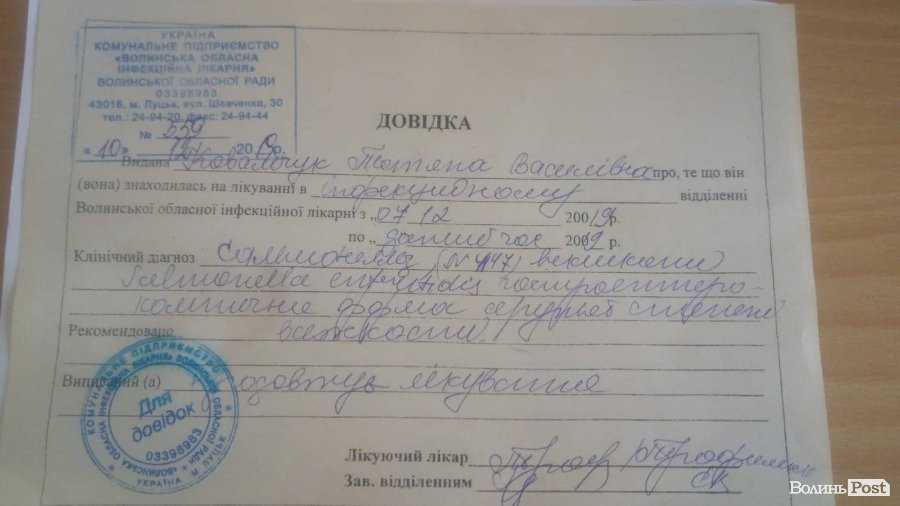 УКРАЇНА
КОМУНАЛЬНЕ ПІДПРИЄМСТВО
«ВОЛИНСЬКА ОБЛАСНА
ІНФЕКЦІЙНА ЛІКАРНЯ»
ВОЛИНСЬКОЇ ОБЛАСНОЇ РАДИ
03398983
43016, м. Луцьк, вул. Шевченка, 30
тел.: 24-94-20, факс: 24-94-44
№ 559
«10» 12 2019р.
ДОВІДКА
Видана Ковальчук Тетяна Василівна про, те що він
(вона) знаходилась на лікуванні в інфекционому відділенні
Волинської обласної інфекційної лікарні з „07 12 20019р.
по „ 2009 р.
Клінічний діагноз Сальмонельоз
Salmonella гастроентеро-
форма середньої
Рекомендовано важкости.
Виписаний (а) Продовжує лікування
Лікуючий лікар
Зав. відділенням
КОМУНАЛЬНЕ ПІДПРИЄМСТВО
«ВОЛИНСЬКА ОБЛАСНА ІНФЕКЦІЙНА ЛІКАРНЯ» ВОЛИНСЬКОЇ ОБЛАСНОЇ РАДИ
Для
довідок
03398983
* УКРАЇНА * м. ЛУЦЬК
ВолиньPost